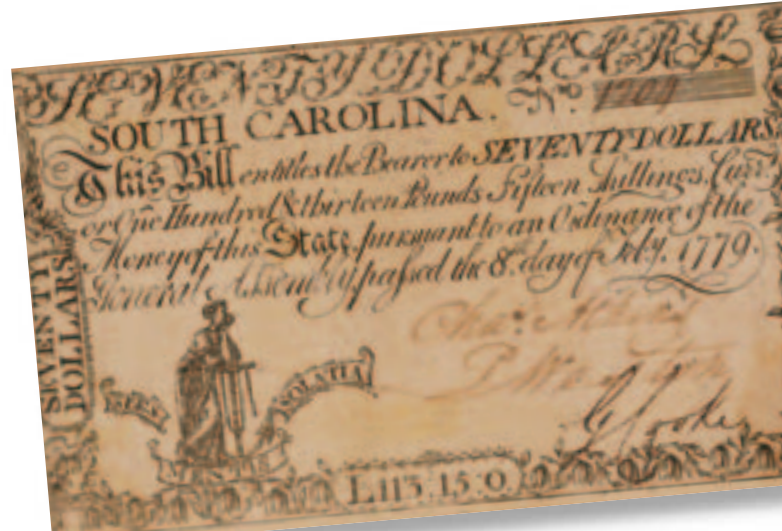 SEVENTY DOLLARS
SOUTH CAROLINA. No.
This Bill entitles the Bearer to SEVENTY DOLLARS
or One Hundred & thirteen Pounds Fifteen Shillings, Curr.
Money of this State, pursuant to an Ordinance of the
General Assembly passed the 8th. day of Feby. 1779.
SEVENTY
DOLLARS
SOLATIA
L113:15:0